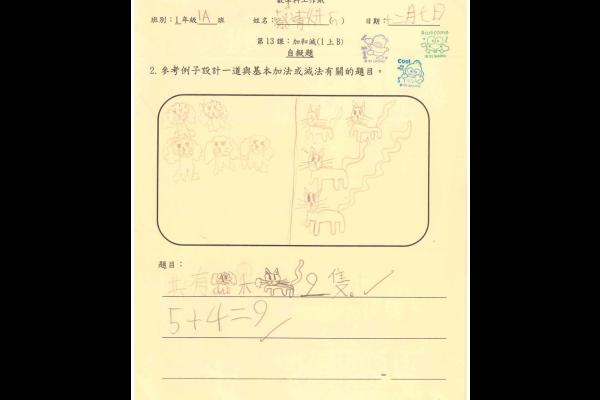 數學科工作紙
班別：1年級1A班 姓名： ( ) 日期：十二月七日
第13課：加和減(1上B)
自擬題
Awesome
Cool
2. 參考例子設計一道與基本加法或減法有關的題目。
題目：
共有和9隻。
5+4=9